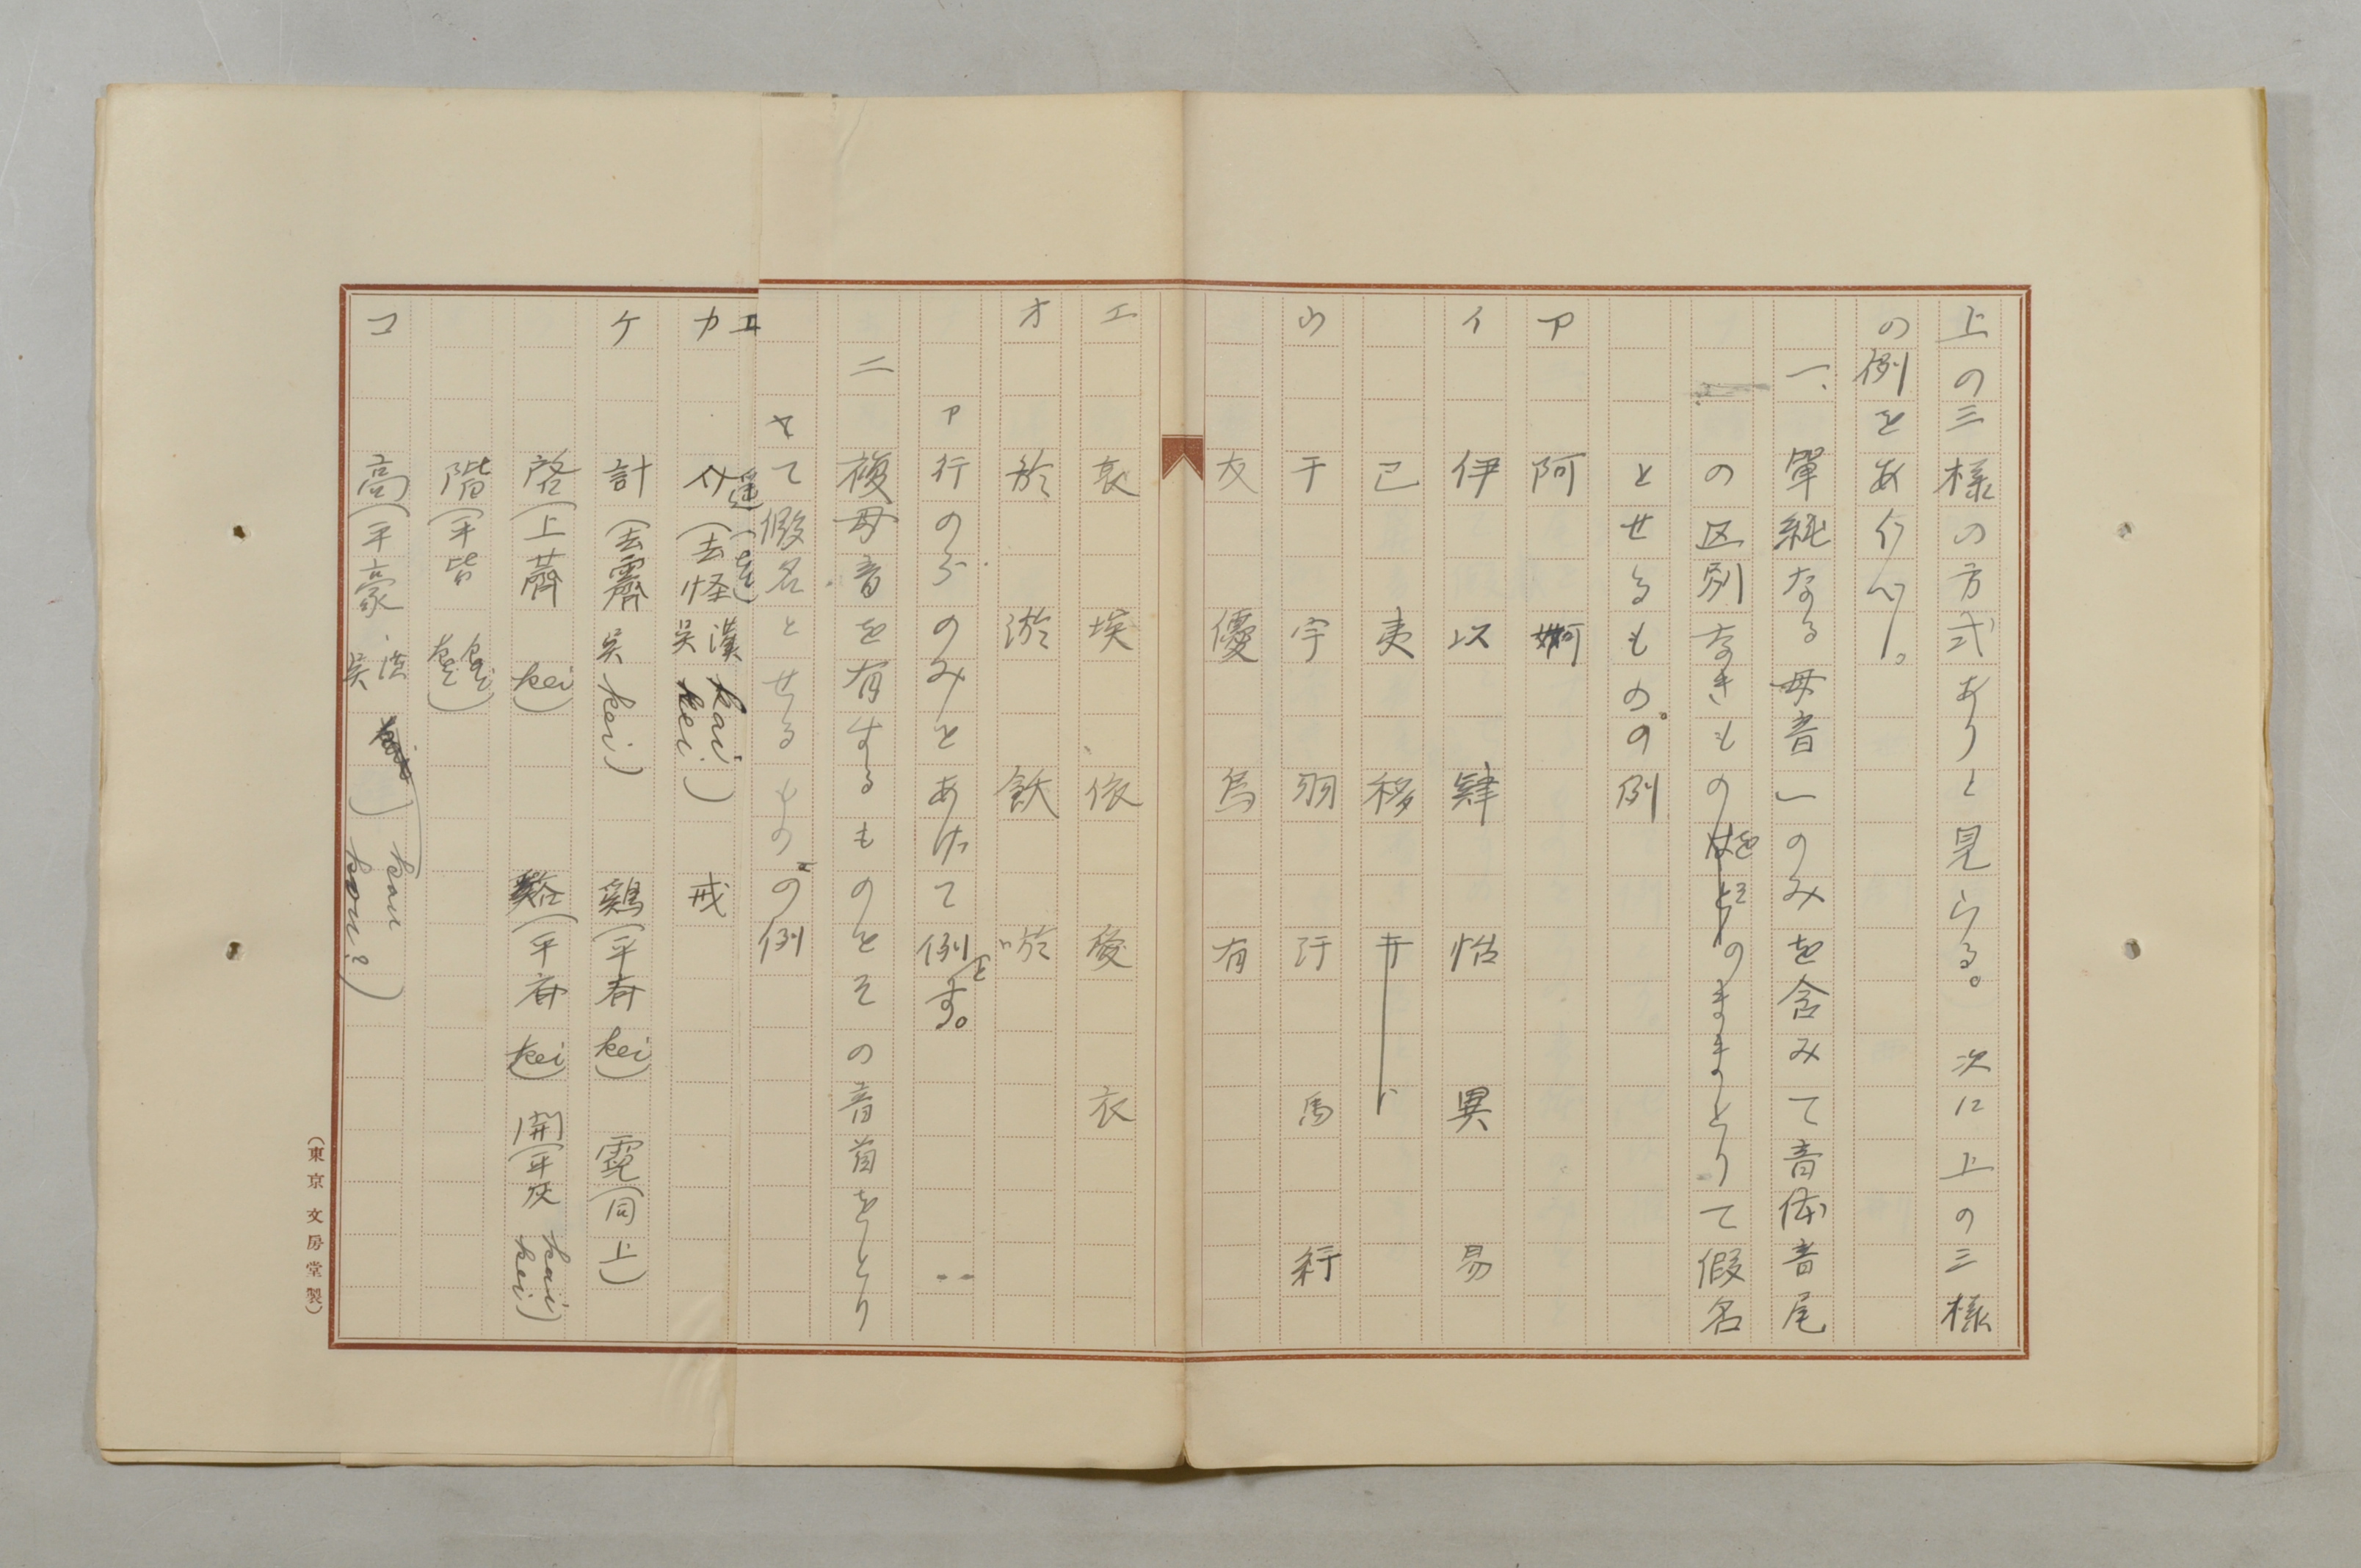 上の三様の方式ありと見らる。次に上の三様
の例をあぐべし。
一、單純なる母音一のみを含みて音体音尾
の区別なきものをそのままとりて假名
とせるものの例
ア 阿 婀
イ 伊 以 肄 怡 異 易
已 夷 移
ウ 于 宇 羽 汙 馬 紆
友 優 烏 有
エ 哀 埃 依 愛 衣
オ 於 淤 飫 唹
ア行のみとあげて例とす。
二 複母音を有するものとその音首をとり
て假名とせるものの例
エ
カ 介(去怪 漢kai 呉kei) 戒
ケ 計(去霽 呉kei) 鷄(平斉kei) 霓(同上)
啓(上薺 kei) 谿(平斉kei) 開(平灰 kai kei)
階(平皆)
コ 高(平豪 漢 呉) kau kou?)
(東京 文房堂製)